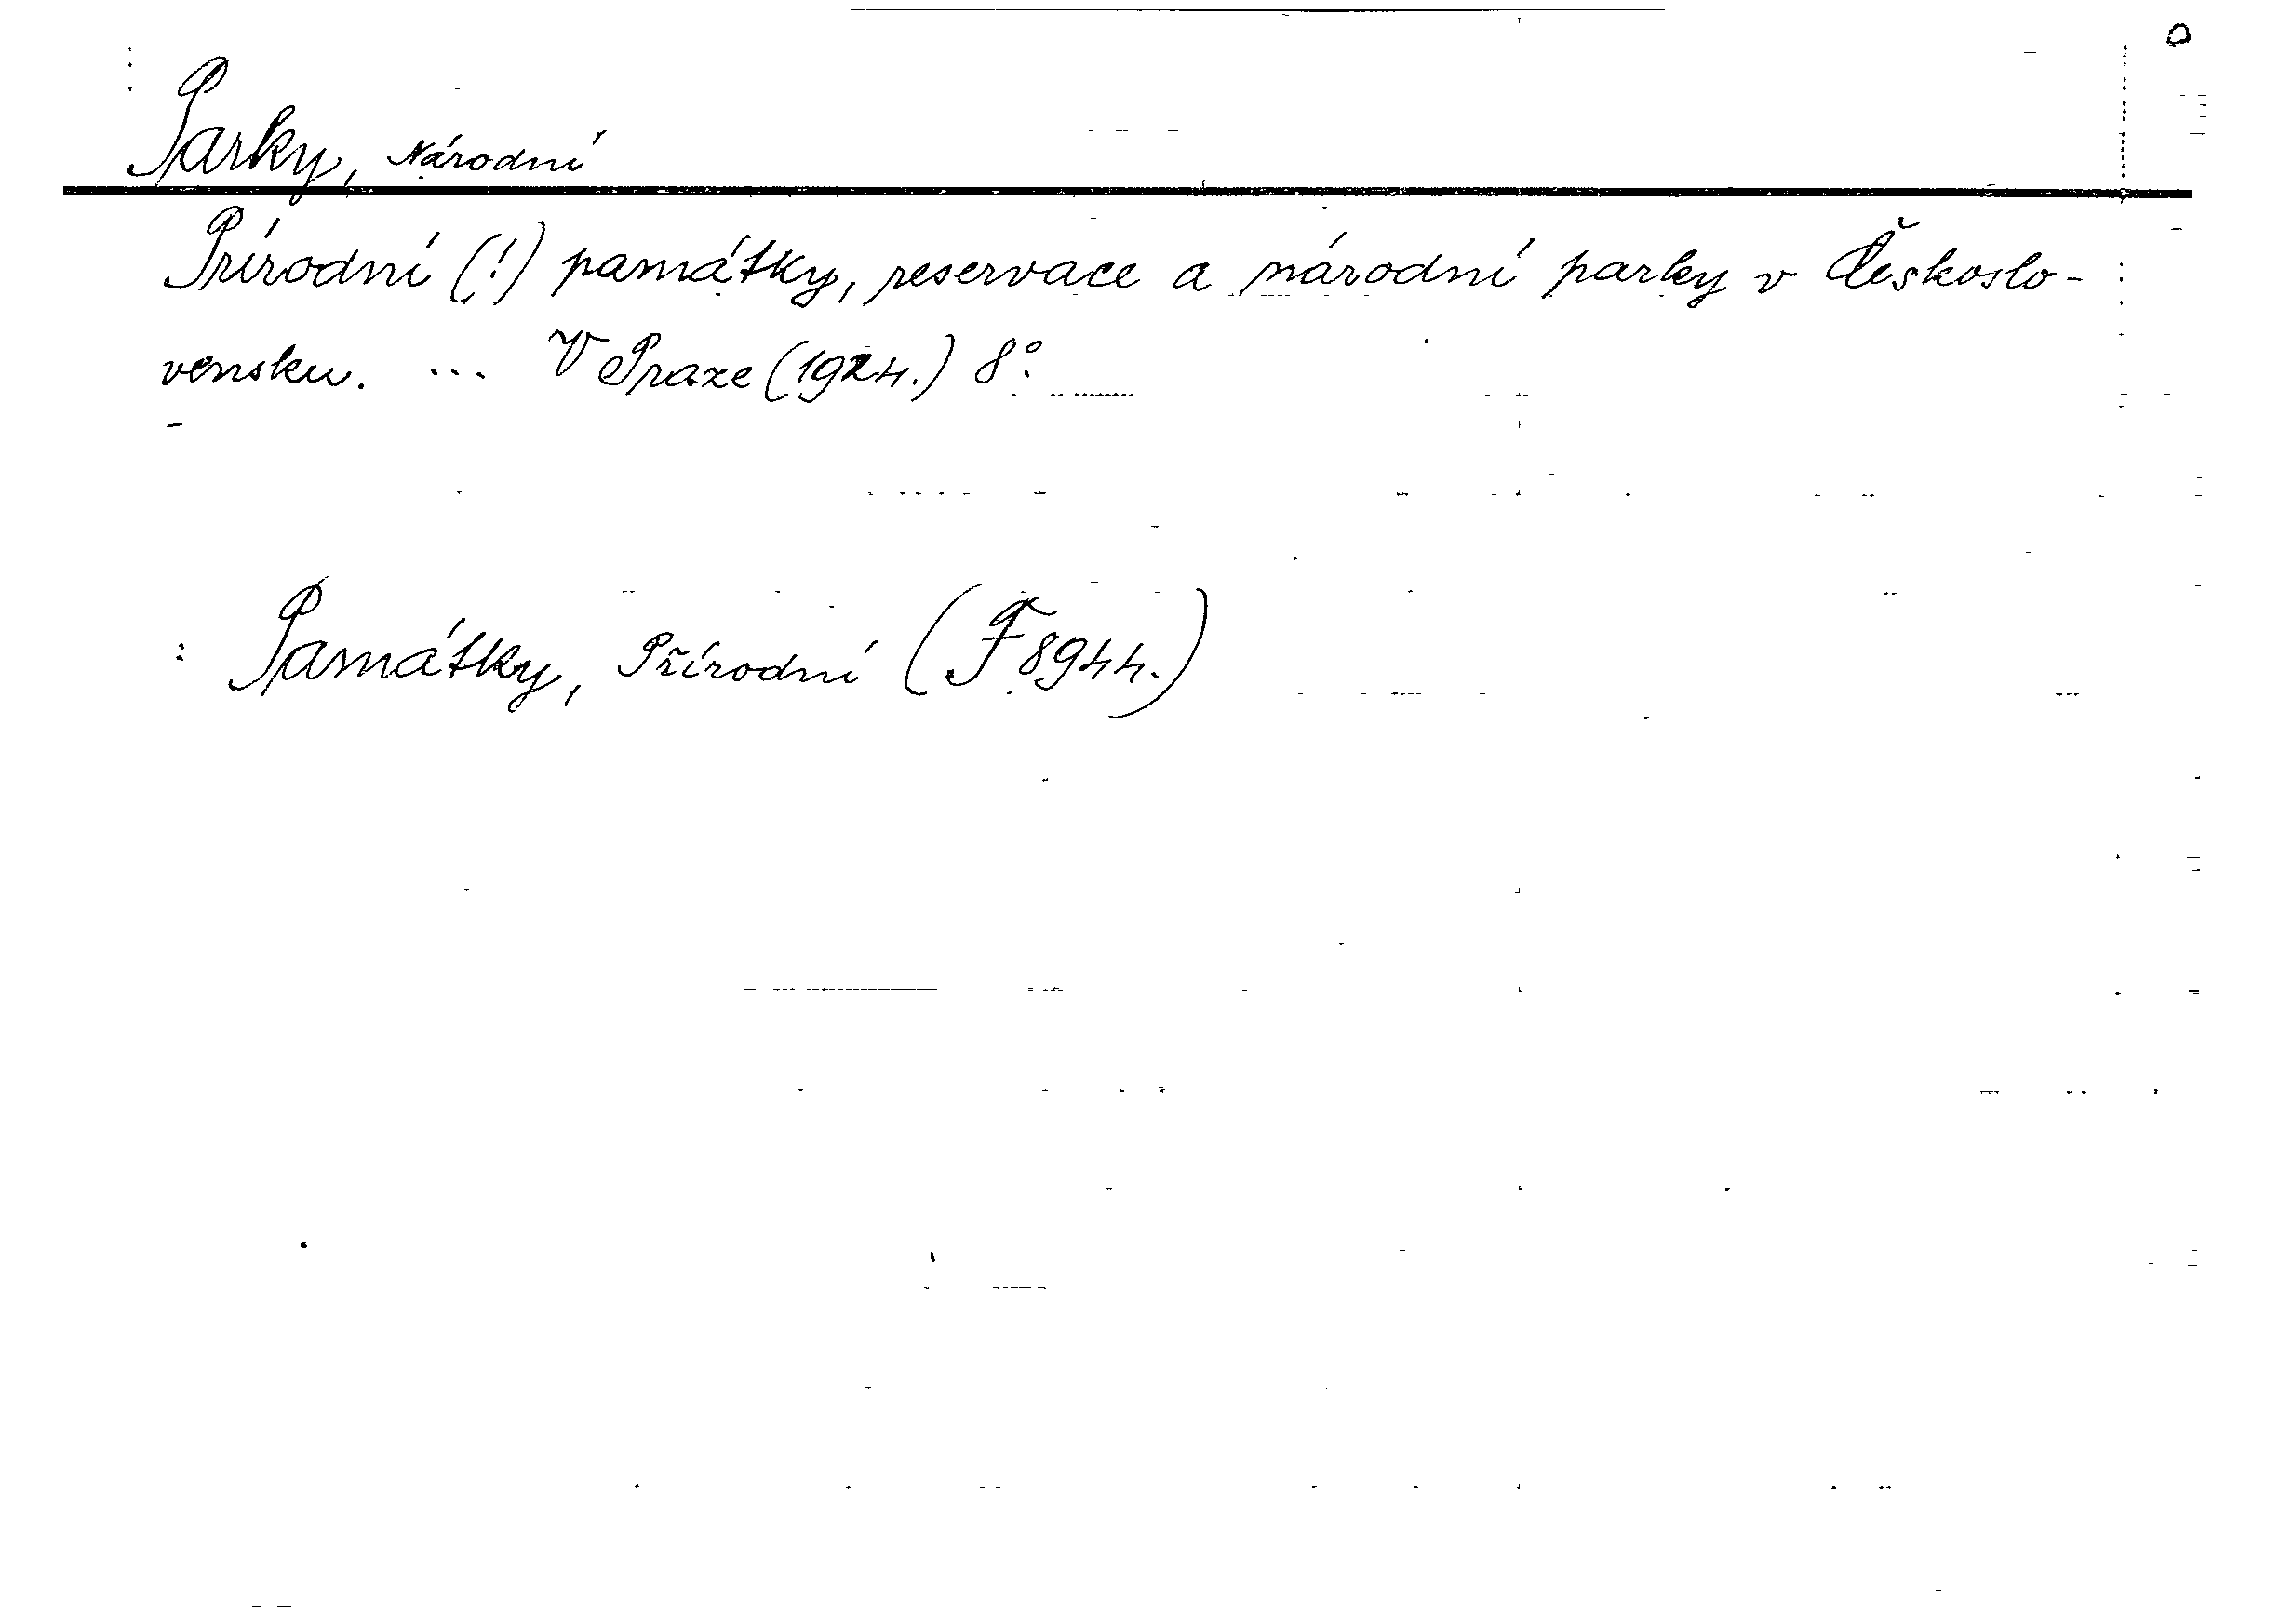 Parky, Národní
Prírodní (!) památky, reservace a národní parky v Českoslo-
vensku. ... V Praze (1924.) 8°.
: Památky, Přírodní (F 8944.)